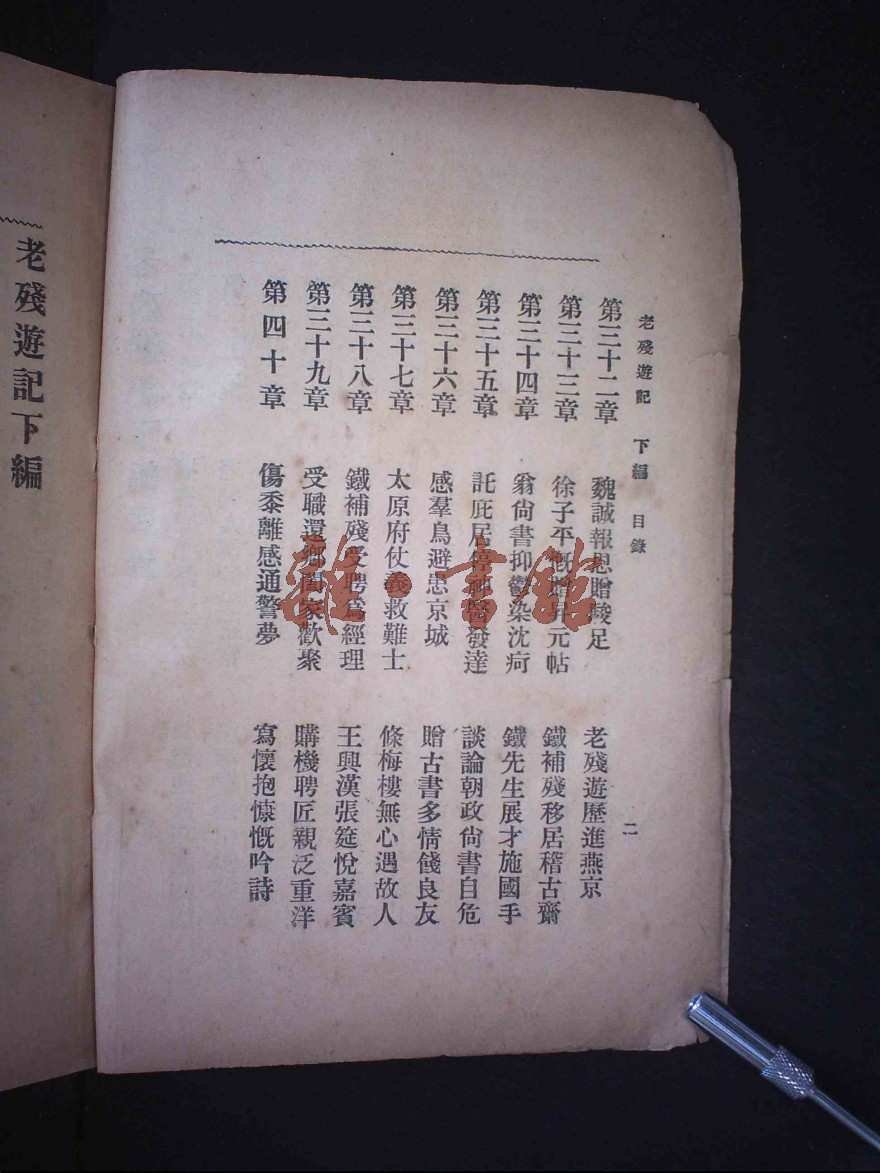 老殘遊記 下編 目錄 二
第三十二章 魏誠報恩贈駿足 老殘遊歷進燕京
第三十三章 徐子平慨贈昇元帖 鐵補殘移居稽古齋
第三十四章 翁尙書抑鬱染沈疴 鐵先生展才施國手
第三十五章 託庇居停神醫發達 談論朝政尙書自危
第三十六章 感羣鳥避患京城 贈古書多情餞良友
第三十七章 太原府仗義救難士 條梅樓無心遇故人
第三十八章 鐵補殘受聘爲經理 王興漢張筵悅嘉賓
第三十九章 受職還鄕闔家歡聚 購機聘匠親泛重洋
第四十章 傷黍離感通警夢 寫懷抱慷慨吟詩
老殘遊記下編
雜·書館